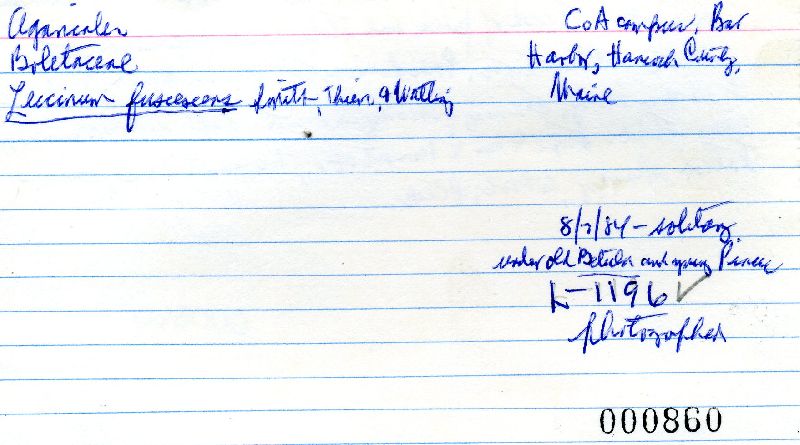 Agaricales
Boletaceae
Leccinum fuscescens Smith, Thiers, & Watling
CoA campus, Bar
Harbor, Hancock County,
Maine
8/7/84 - solitary
under old Betula and young Picea
K-1196 ✓
photographed
000860